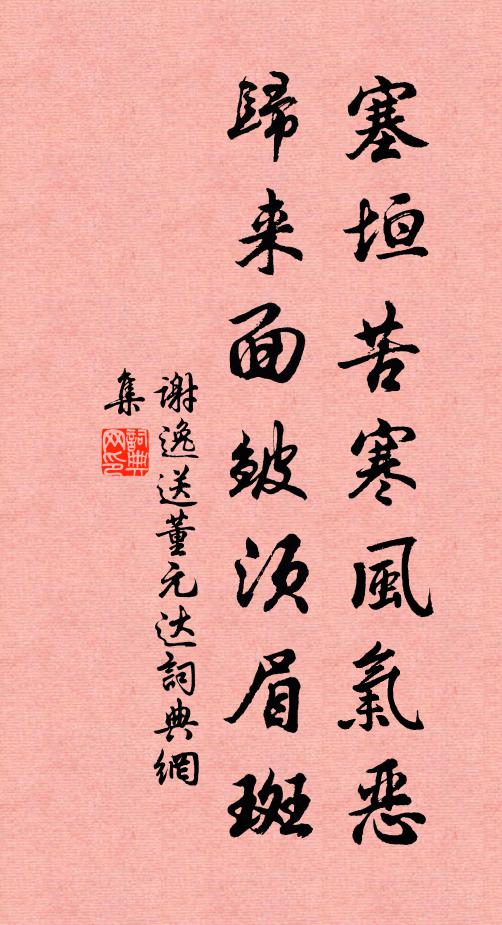 塞垣苦寒風氣惡
歸来面皴須眉斑
謝逸送董元达詞典網
集
詞典網印